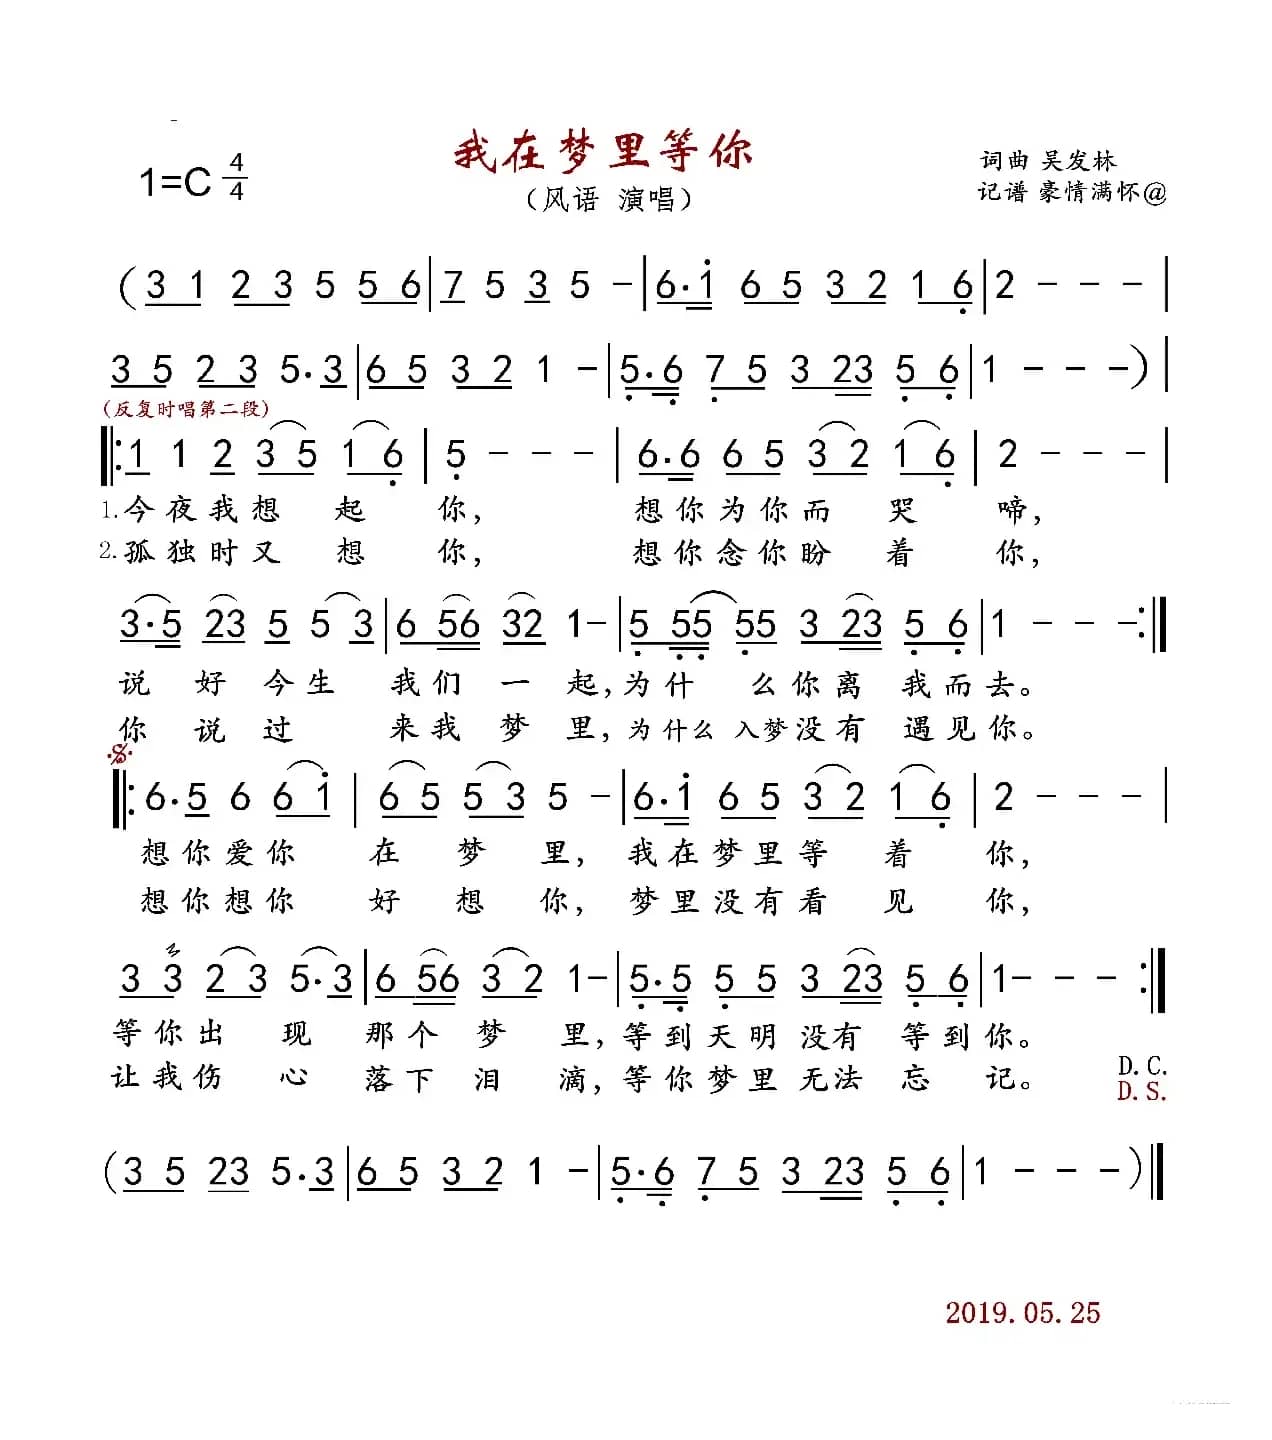 我在梦里等你
1=C 4/4
（风语 演唱）
词曲 吴发林
记谱 豪情满怀@
（3 1 2 3 5 5 6 | 7 5 3 5 － | 6·1 6 5 3 2 1 6 | 2 － － － |
3 5 2 3 5·3 | 6 5 3 2 1 － | 5·6 7 5 3 23 5 6 | 1 － － －）|
(反复时唱第二段)
‖: 1 1 2 3 5 1 6 | 5 － － － | 6·6 6 5 3 2 1 6 | 2 － － － |
1.今夜我想起你，想你为你而哭啼，
2.孤独时又想你，想你念你盼着你，
3·5 23 5 5 3 | 6 56 32 1－ | 5 55 55 3 23 5 6 | 1 － － － :‖
说好今生我们一起，为什么你离我而去。
你说过来我梦里，为什么入梦没有遇见你。
‖: 6·5 6 6 1 | 6 5 5 3 5 － | 6·1 6 5 3 2 1 6 | 2 － － － |
想你爱你在梦里，我在梦里等着你，
想你想你好想你，梦里没有看见你，
3 3 2 3 5·3 | 6 56 3 2 1－ | 5·5 5 5 3 23 5 6 | 1－ － － :‖
等你出现那个梦里，等到天明没有等到你。
让我伤心落下泪滴，等你梦里无法忘记。
D.C.
D.S.
（3 5 23 5·3 | 6 5 3 2 1 － | 5·6 7 5 3 23 5 6 | 1 － － －）‖
2019.05.25